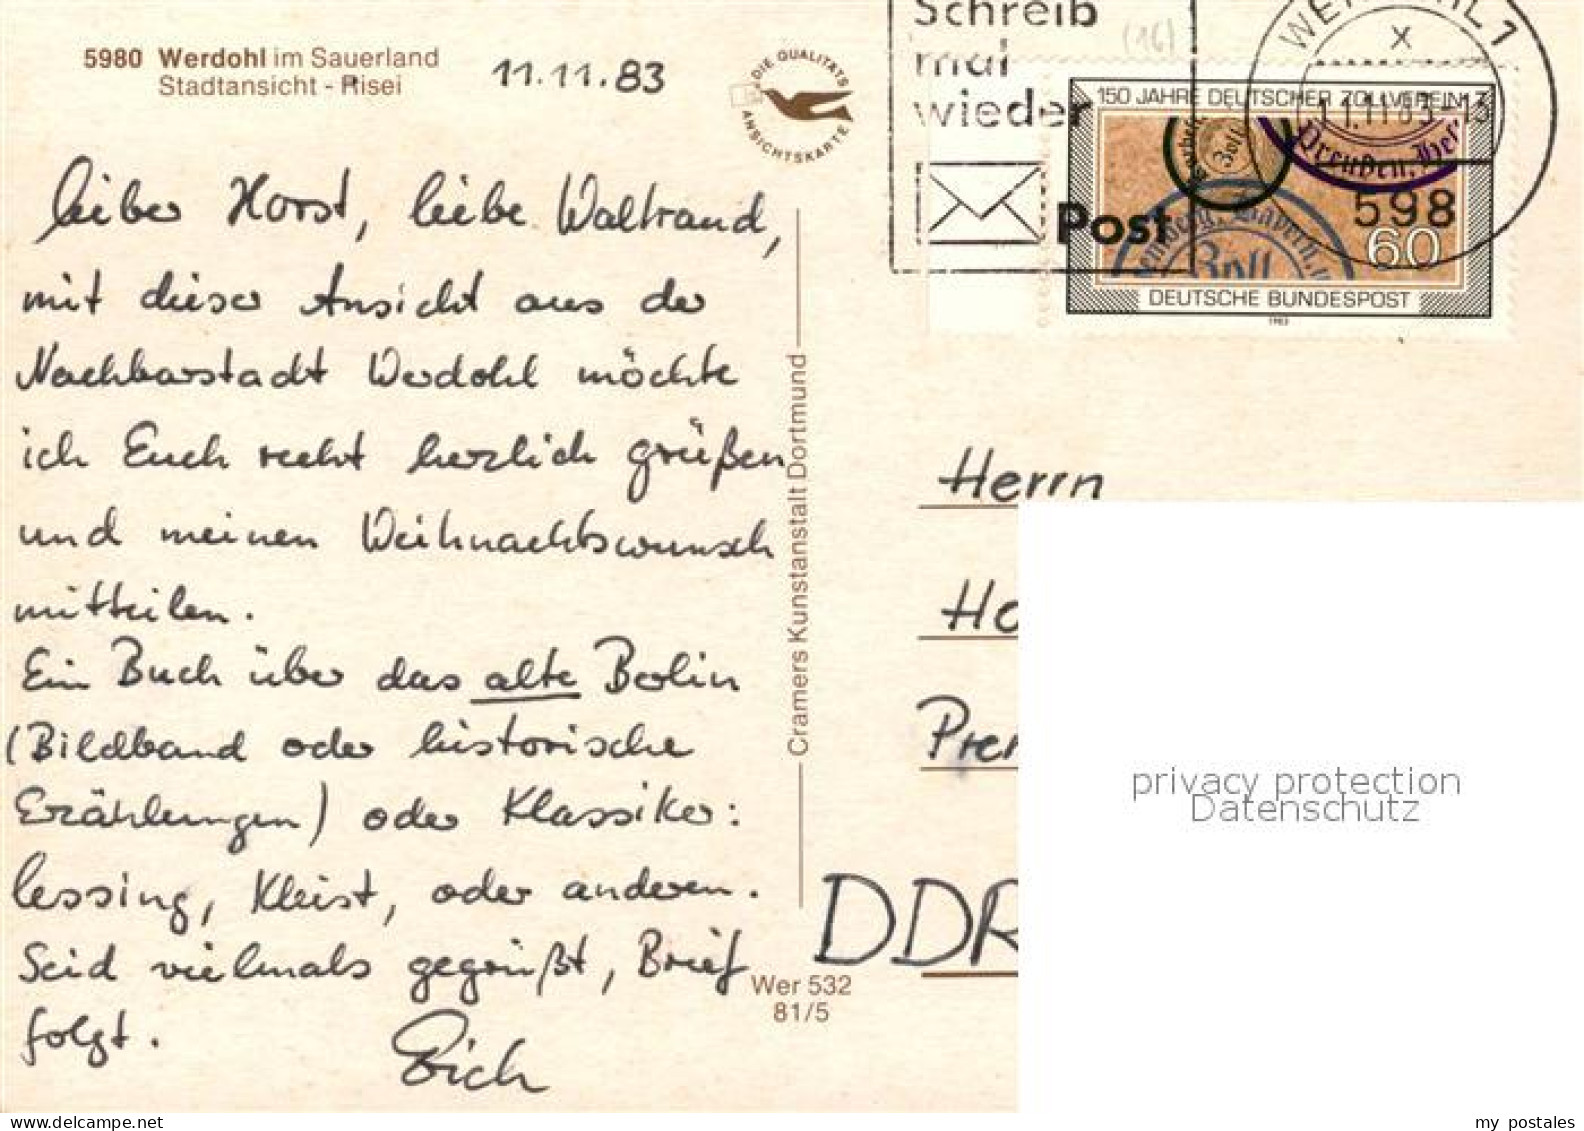 5980 Werdohl im Sauerland
Stadtansicht - Risei
11.11.83
DIE QUALITÄTS
ANSICHTSKARTE
Lieber Horst, liebe Waltraud,
mit dieser Ansicht aus der
Nachbarstadt Werdohl möchte
ich Euch recht herzlich grüßen
und meinen Weihnachtswunsch
mitteilen.
Ein Buch über das alte Berlin
(Bildband oder historische
Erzählungen) oder Klassiker:
Lessing, Kleist, oder anderen.
Seid vielmals gegrüßt, Brief
folgt.
Erich
Cramers Kunstanstalt Dortmund
Wer 532
81/5
Schreib
mal
wieder
Post
(16)
150 JAHRE DEUTSCHER ZOLLVEREIN
Zoll
Preußen, Hes
Bayern,
Zoll
598
60
DEUTSCHE BUNDESPOST
1983
x
11.11.83-13
Herrn
Ho
DDR
privacy protection
Datenschutz
my postales